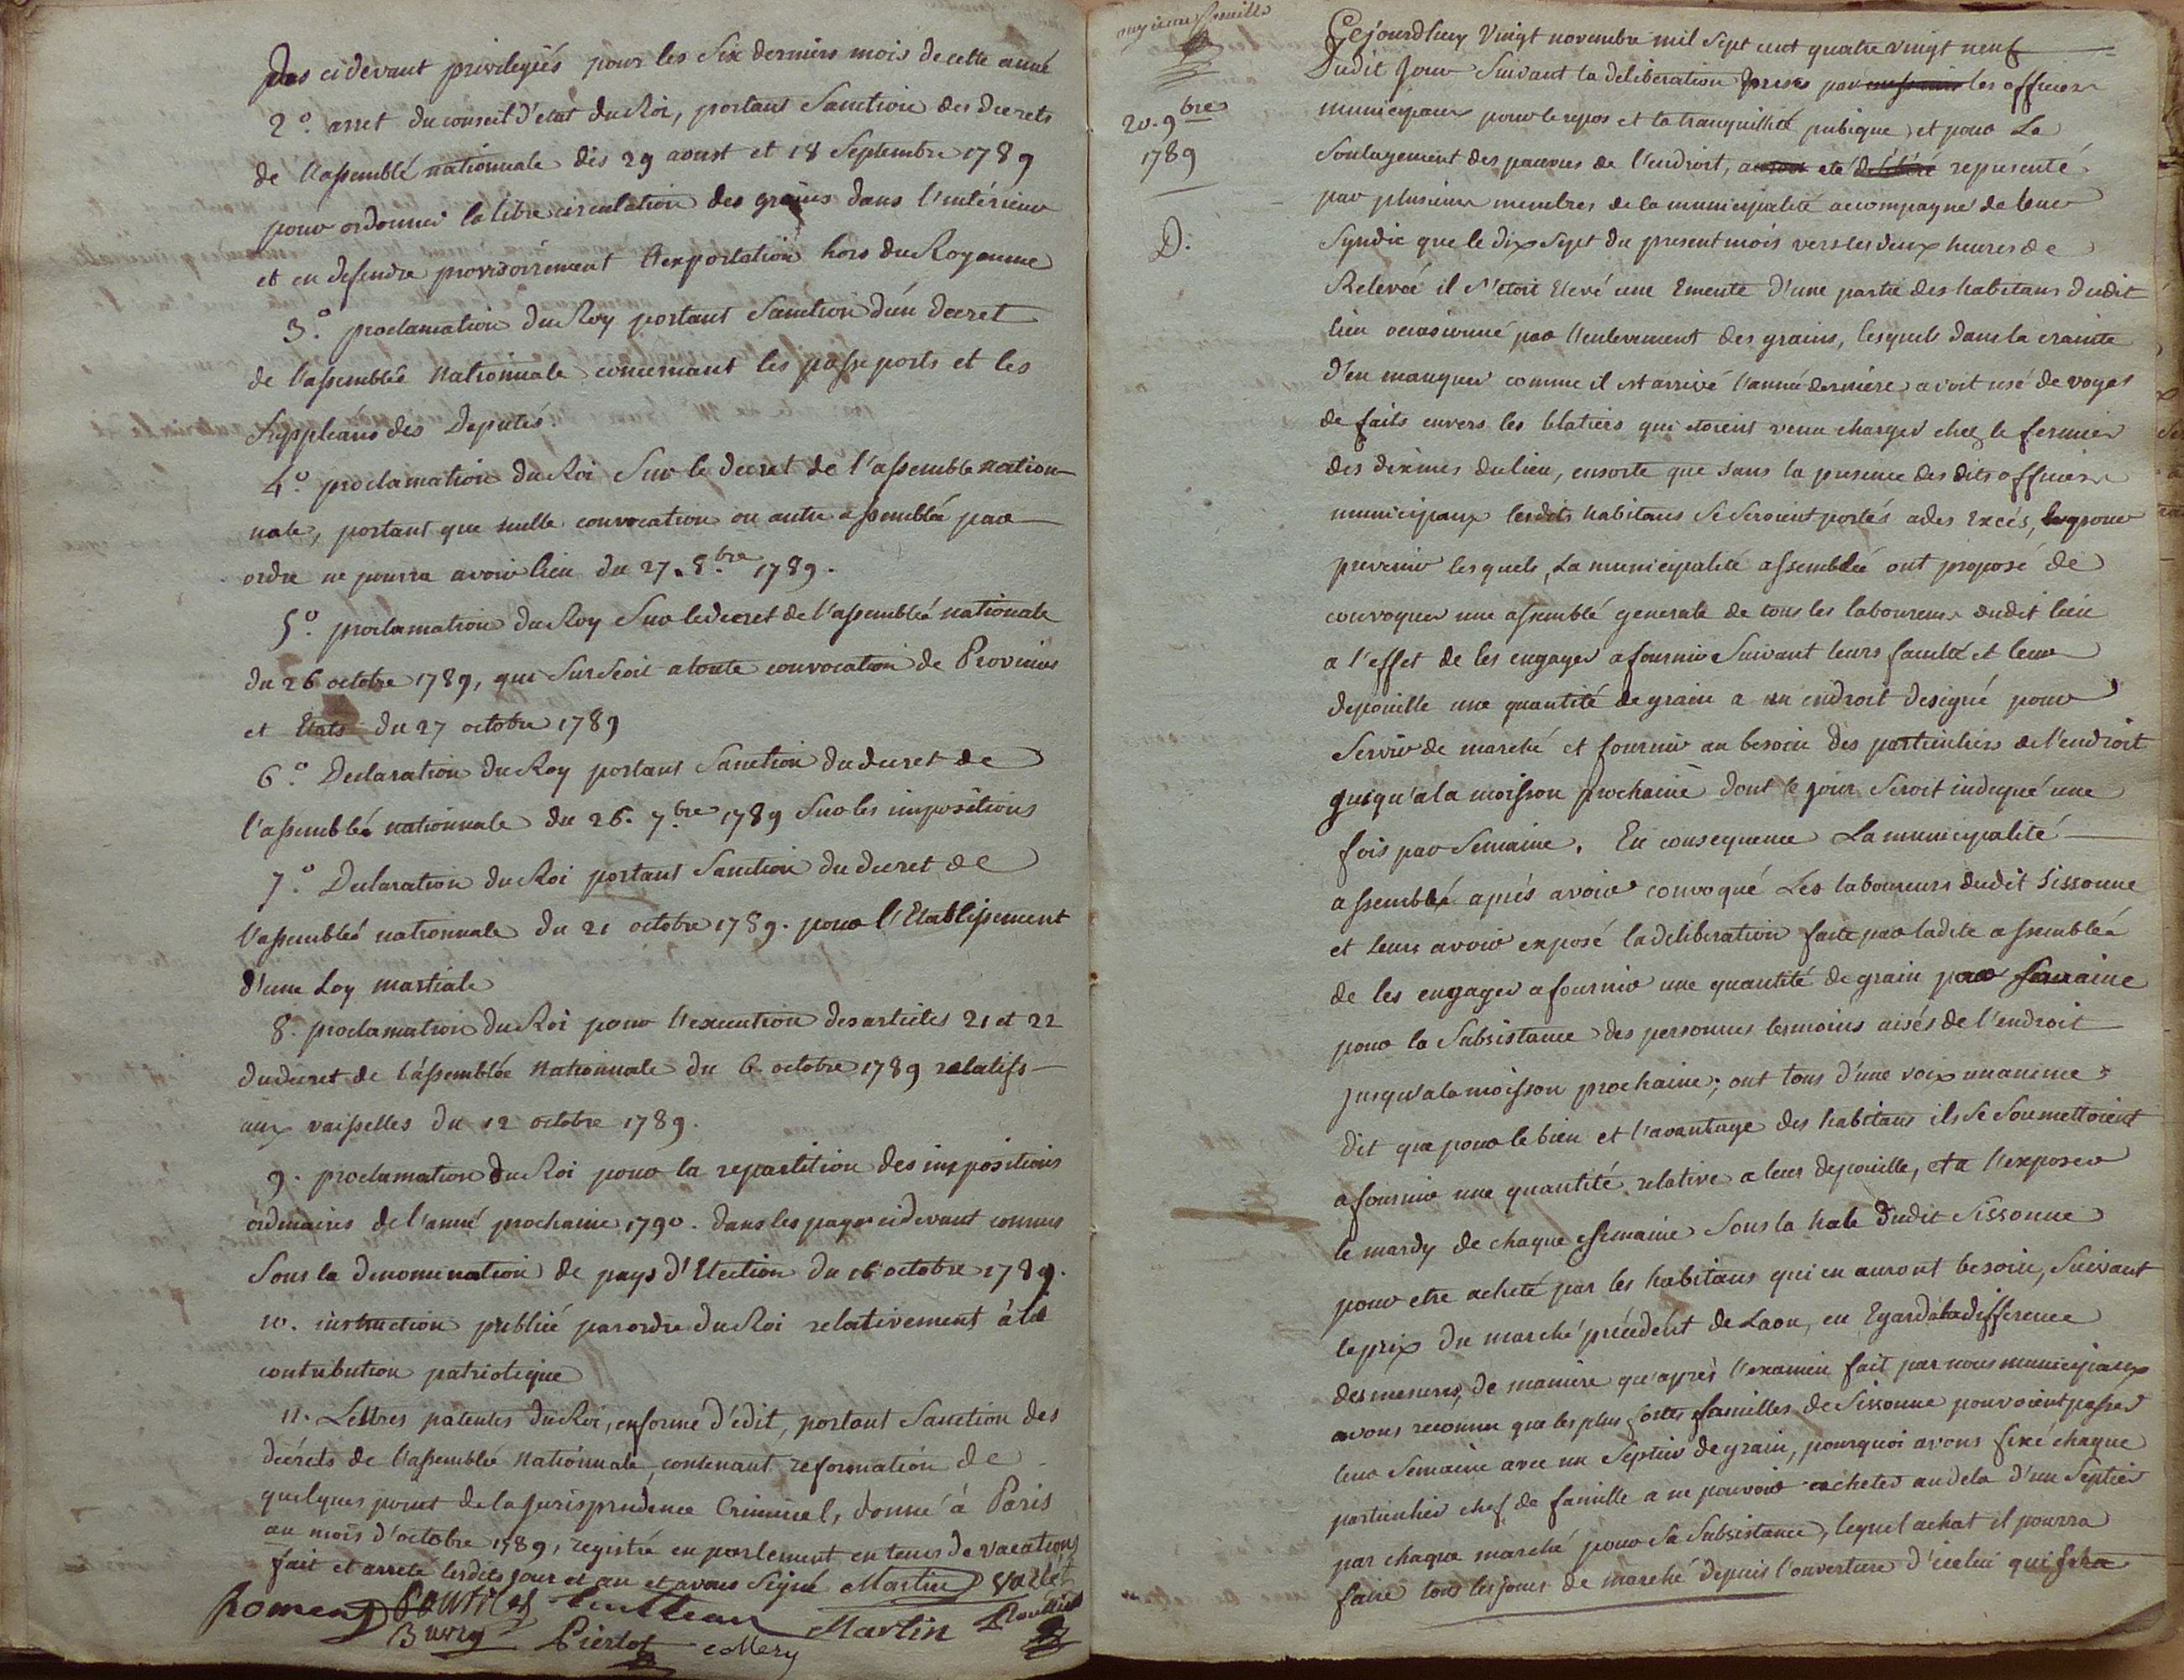 Des cidevant privilegiés pour les Six derniers mois de cette anné
2º. arret du conseil d'état du Roi, portant Sanction des decrets
de l'assemblé nationnale dès 29 aoust et 18 Septembre 1789
pour ordonner la libre circulation des grains dans l'intérieur
et en defendre provisoirement l'exportation hors du Royaume
3.º proclamation du Roy portant Sanction d'un decret
de l'assemblée Nationnale concernant les passeports et les
Suppléans des Deputés.
4.º proclamation du Roi Sur le decret de l'assemble nation-
nale, portant que nulle convocation ou autre assemblée par
ordre ne pourra avoir lieu du 27. 8.bre 1789.
5º. proclamation du Roy Sur le decret de l'assemblée nationale
du 26 octobre 1789, qui Surseoit a toute convocation de Provinces
et Etats du 27 octobre 1789
6.º Declaration du Roy portant Sanction du decret de
l'assemblée nationnale du 26. 7.bre 1789 Sur les impositions
7.º Declaration du Roi portant Sanction du decret de
l'assemblée nationnale du 21 octobre 1789. pour l'Etablissement
d'une Loy martiale
8. proclamation du Roi pour l'execution des articles 21 et 22
du decret de l'assemblée Nationnale du 6 octobre 1789 relatifs
aux vaisselles du 12 octobre 1789.
9. proclamation du Roi pour la repartition des impositions
ordinaires de l'anné prochaine 1790. dans les pays cidevant connus
Sous la denomination de pays d'Election du 16 octobre 1789.
10. instruction publié par ordre du Roi relativement à la
contribution patriotique
11. Lettres patentes du Roi, en forme d'édit, portant Sanction des
décrets de l'assemblée Nationnale, contenant reformation de
quelques point de la Jurisprudence Criminel, donné à Paris
au mois d'octobre 1789, registré en parlement en tems de vacations
fait et arreté lesdits jour et an et avons Signé Martin
Martin
Pierlot
collery
onzieme feuille
20. 9bres
1789
D.
Cejourdhuy Vingt novembre mil Sept cent quatre vingt neuf
Dudit Jour Suivant la deliberation prises par les officiers
municipaux pour le repos et la tranquillité pubique et pour Le
Soulagement des pauvres de l'endroit, a été délibéré representé
par plusieurs membres de la municipalité accompagné de leur
Syndic que le dix Sept du present mois vers les deux heures de
Relevée il s'etoit Elevé une Emeute d'une partie des habitans dudit
lieu occasionné par l'enlevement des grains, lesquels dans la crainte
d'en manquer comme il est arrivé l'anné derniere avoit usé de voyes
de faits envers les blatiers qui etoient venu charger chez le fermier
des dixmes du lieu, ensorte que sans la presence des dits officiers
municipaux lesdits habitans Se Seroient portés a des Excés, pour
prevenir lesquels, La municipalité assemblée ont proposé de
convoquer une assemblé generale de tous les laboureurs dudit lieu
a l'effet de les engager a fournir Suivant leurs faculté et leur
depouille une quantité de grain a un endroit designé pour
Servir de marché et fournir au besoin des particuliers de l'endroit
jusqu'a la moisson prochaine dont le jour Seroit indiqué une
fois par Semaine. En consequence La municipalité
assemblé aprés avoir convoqué Les laboureurs dudit Sissonne
et leurs avoir exposé la deliberation faite par ladite assemblée
de les engager a fournir une quantité de grain par Semaine
pour la Subsistance des personnes les moins aisés de l'endroit
jusqu'a la moisson prochaine; ont tous d'une voix unanime
dit que pour le bien et l'avantage des habitans ils Se Soumettoient
a fournir une quantité relative a leur depouille, et a l'exposer
le mardy de chaque Semaine Sous la hale dudit Sissonne
pour etre acheté par les habitans qui en auront besoin, Suivant
le prix du marché précedent de Laon, eu Egard a la difference
des mesures, de maniere qu'aprés l'examen fait par nous municipaux
avons reconnu que les plus fortes familles de Sissonne pouvoient passer
leur Semaine avec un Septier de grain, pourquoi avons fixé chaque
particulier chef de famille a ne pouvoir acheter audela d'un Septier
par chaque marché pour Sa Subsistance, lequel achat il pourra
faire tous les jours de marché depuis l'ouverture d'icelui qui fera